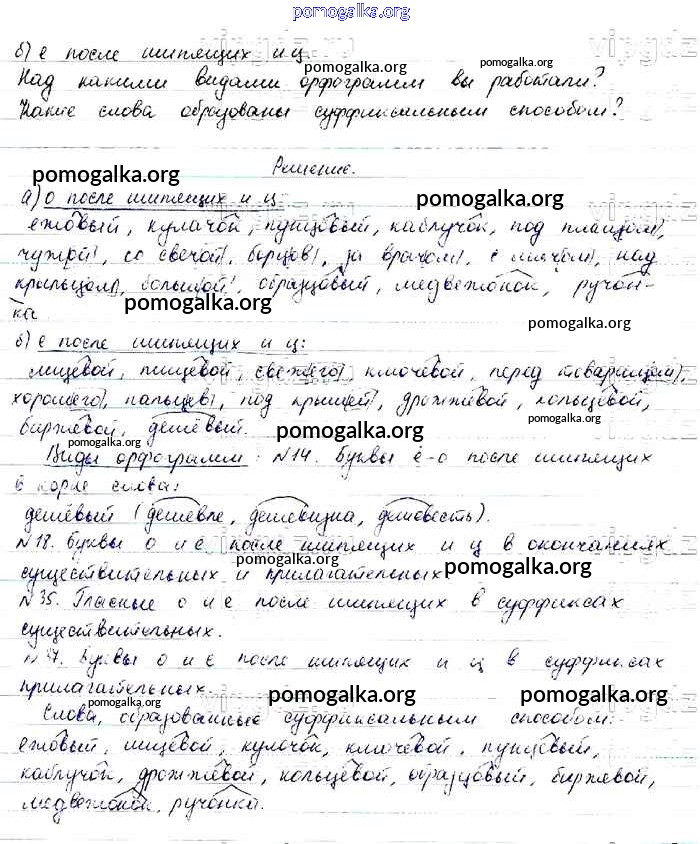 pomogalka.org
б) е после шипящих и ц.
pomogalka.org
pomogalka.org
Над какими видами орфограмм вы работали?
Какие слова образованы суффиксальным способом?
Решение.
pomogalka.org
pomogalka.org
а) о после шипящих и ц:
ежовый, кулачок, пунцовый, каблучок, под плащом,
чужой, со свечой, борцов, за врачом, с мячом, над
крыльцом, большой, образцовый, медвежонок, ручон-
pomogalka.org
ка.
pomogalka.org
б) е после шипящих и ц:
вещевой, пищевой, свежего, ключевой, перед товарищем,
хорошего, пальцев, под крышей, дрожжевой, кольцевой,
pomogalka.org
биржевой, дешёвый.
pomogalka.org
pomogalka.org
Виды орфограмм: №14. Буквы ё-о после шипящих
в корне слова:
дешёвый (дешевле, дешевизна, дешевость).
№18. Буквы о и е после шипящих и ц в окончаниях
pomogalka.org
pomogalka.org
существительных и прилагательных
№35. Гласные о и е после шипящих в суффиксах
существительных.
№37. Буквы о и е после шипящих и ц в суффиксах
прилагательных.
pomogalka.org
pomogalka.org
pomogalka.org
Слова, образованные суффиксальным способом:
ежовый, вещевой, кулачок, ключевой, пунцовый,
каблучок, дрожжевой, кольцевой, образцовый, биржевой,
медвежонок, ручонка.